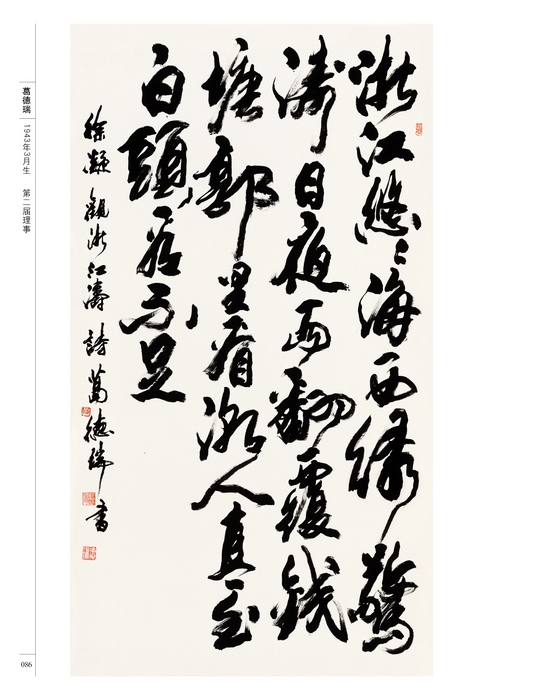 浙江悠々海西綠驚
濤日夜兩翻覆錢
塘郭里看潮人直至
白頭看不足
徐凝觀浙江濤詩葛德瑞書
葛德瑞 1943年3月生 第二届理事
086